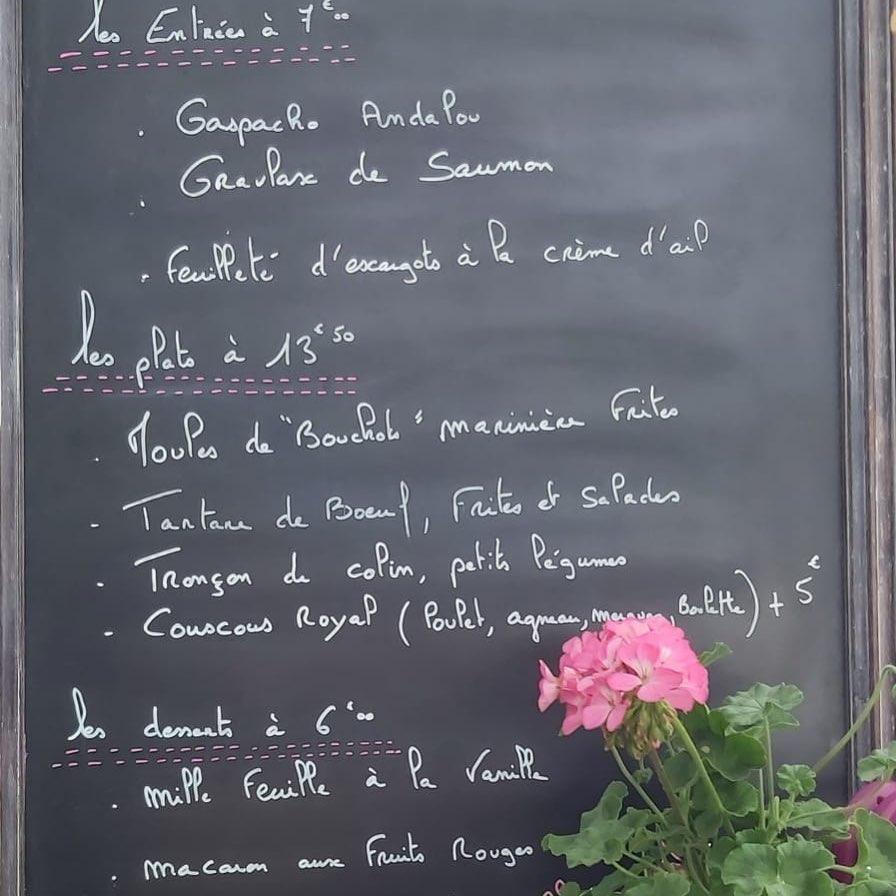 les Entrées à 7€00
. Gaspacho Andalou
. Gravlax de Saumon
. Feuilleté d'escargots à la crème d'ail
les plats à 13€50
. Moules de "Bouchots" marinière Frites
- Tartare de Boeuf, Frites et Salades
. Tronçon de colin, petits légumes
- Couscous Royal (Poulet, agneau, Boulette) + 5€
les desserts à 6€00
. Mille Feuille à la Vanille
. Macaron aux Fruits Rouges